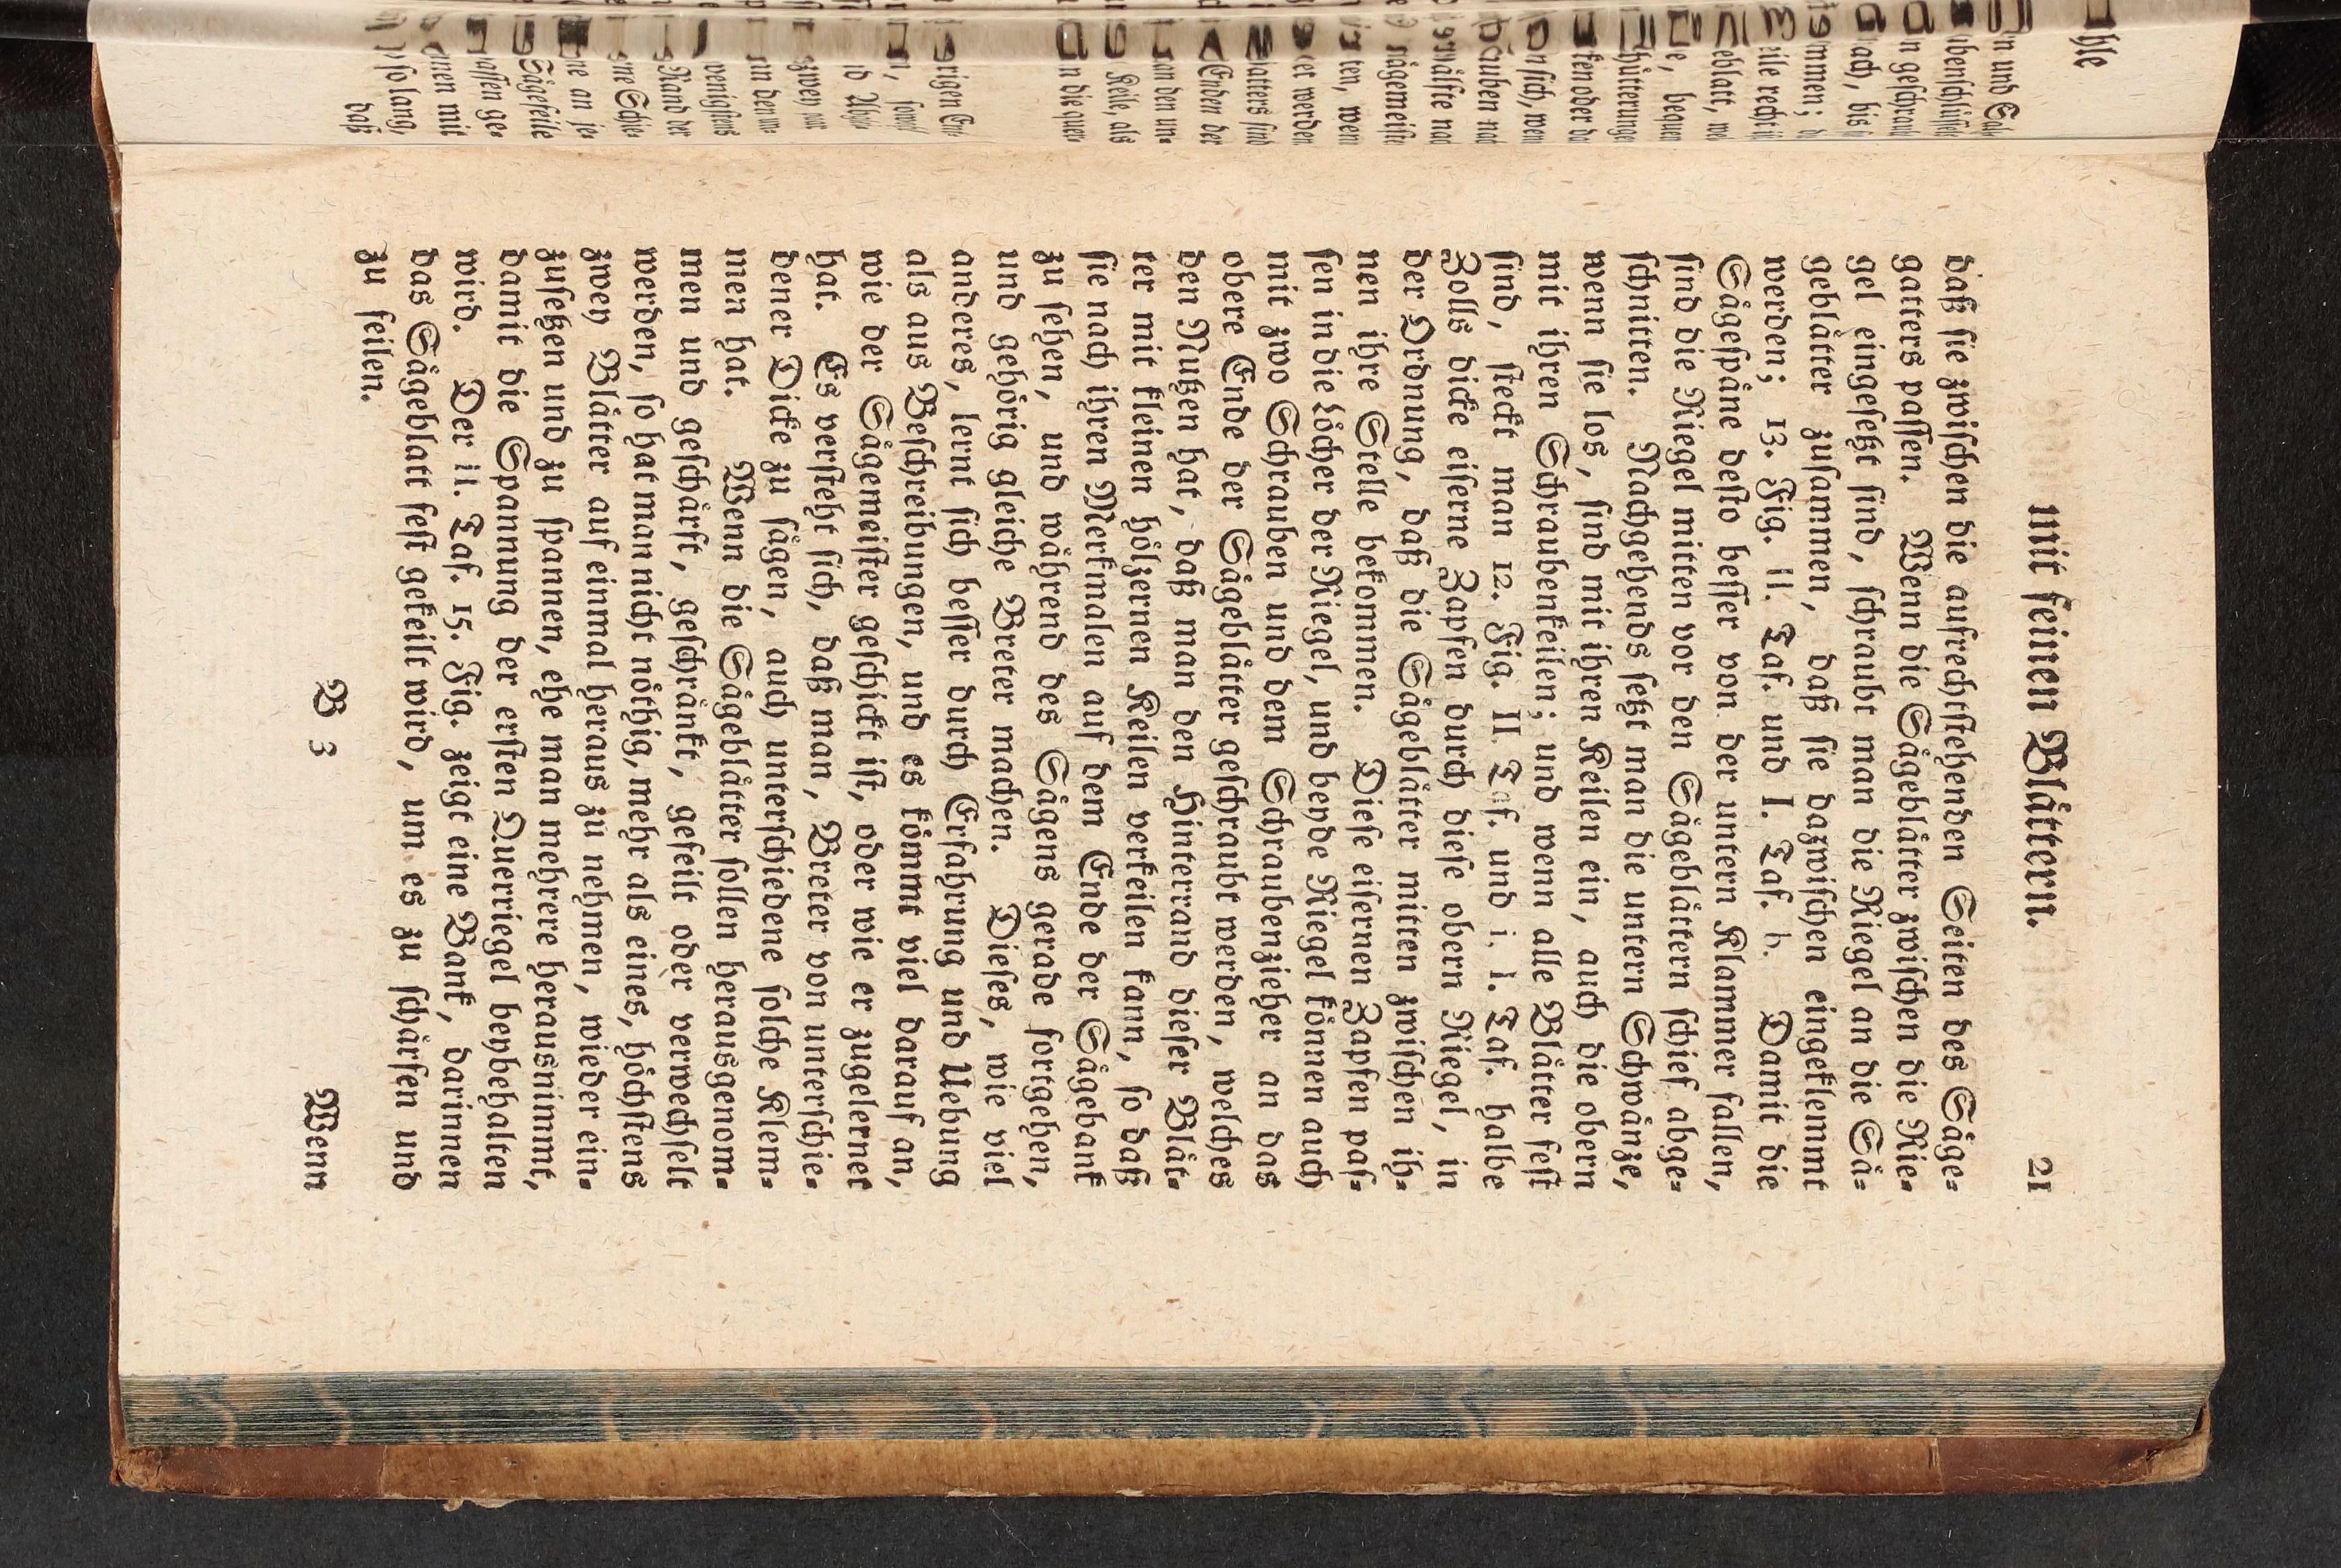 mit seinen Blättern. 21
daß sie zwischen die aufrechtstehenden Seiten des Säge-
gatters passen. Wenn die Sägeblätter zwischen die Rie-
gel eingesetzt sind, schraubt man die Riegel an die Sä-
geblätter zusammen, daß sie dazwischen eingeklemmt
werden; 13. Fig. II. Taf. und I. Taf. h. Damit die
Sägespäne desto besser von der untern Klammer fallen,
sind die Riegel mitten vor den Sägeblättern schief abge-
schnitten. Nachgehends setzt man die untern Schwänze,
wenn sie los, sind mit ihren Keilen ein, auch die obern
mit ihren Schraubenkeilen; und wenn alle Blätter fest
sind, steckt man 12. Fig. II. Taf. und i. I. Taf. halbe
Zolls dicke eiserne Zapfen durch diese obern Riegel, in
der Ordnung, daß die Sägeblätter mitten zwischen ih-
nen ihre Stelle bekommen. Diese eisernen Zapfen pas-
sen in die Löcher der Riegel, und beyde Riegel können auch
mit zwo Schrauben und dem Schraubenzieher an das
obere Ende der Sägeblätter geschraubt werden, welches
den Nutzen hat, daß man den Hinterrand dieser Blät-
ter mit kleinen hölzernen Keilen verkeilen kann, so daß
sie nach ihren Merkmalen auf dem Ende der Sägebank
zu sehen, und während des Sägens gerade fortgehen,
und gehörig gleiche Breter machen. Dieses, wie viel
anderes, lernt sich besser durch Erfahrung und Uebung
als aus Beschreibungen, und es kömmt viel darauf an,
wie der Sägemeister geschickt ist, oder wie er zugelernet
hat. Es versteht sich, daß man, Breter von unterschie-
dener Dicke zu sägen, auch unterschiedene solche Klem-
men hat. Wenn die Sägeblätter sollen herausgenom-
men und geschärft, geschränkt, gefeilt oder verwechselt
werden, so hat man nicht nöthig, mehr als eines, höchstens
zwey Blätter auf einmal heraus zu nehmen, wieder ein-
zusetzen und zu spannen, ehe man mehrere herausnimmt,
damit die Spannung der ersten Querriegel beybehalten
wird. Der II. Taf. 15. Fig. zeigt eine Bank, darinnen
das Sägeblatt fest gekeilt wird, um es zu schärfen und
zu feilen.
B 3 Wenn